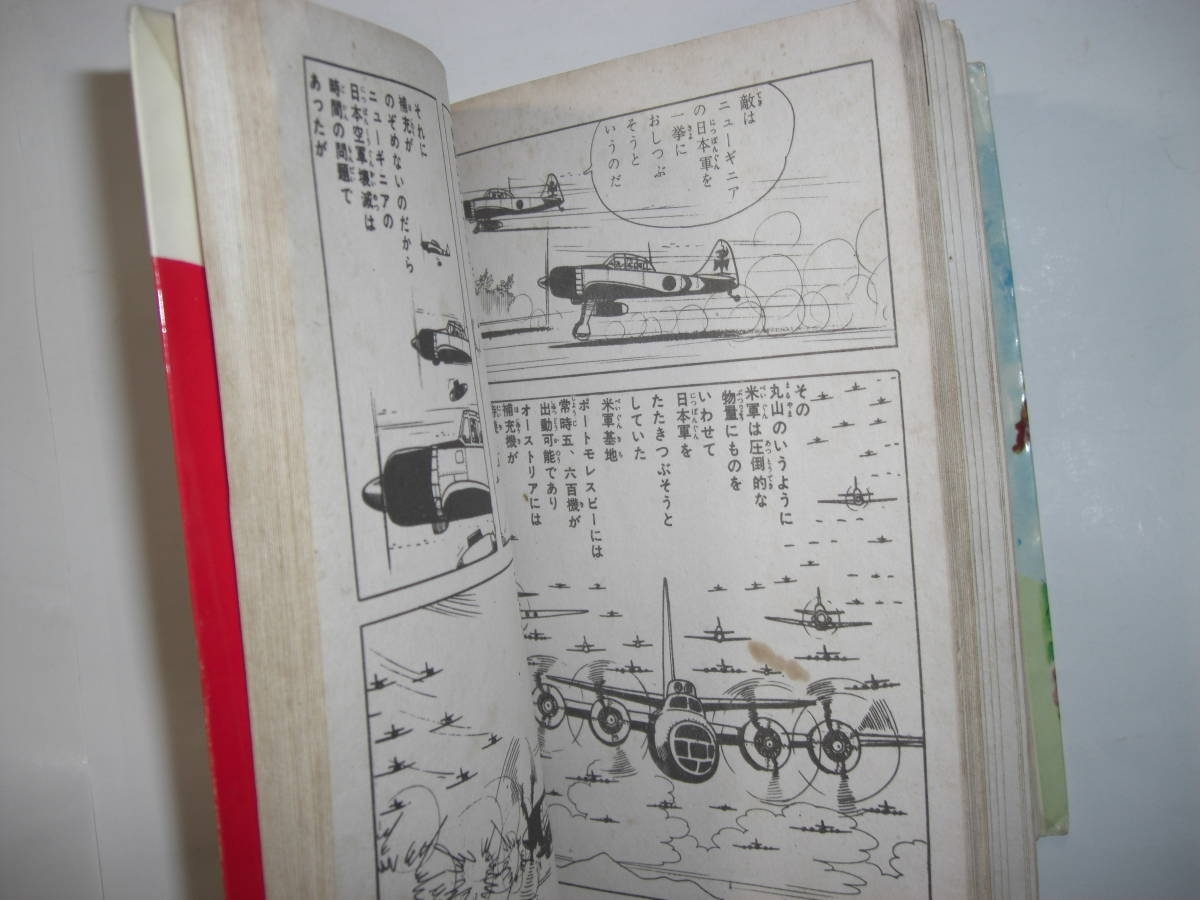 敵は
ニューギニア
の日本軍を
一挙に
おしつぶ
そうと
いうのだ
その
丸山のいうように
米軍は圧倒的な
物量にものを
いわせて
日本軍を
たたきつぶそうと
していた
米軍基地
ポートモレスビーには
常時五、六百機が
出動可能であり
オーストリアには
補充機が
それに
補充が
のぞめないのだから
ニューギニアの
日本空軍壊滅は
時間の問題で
あったが